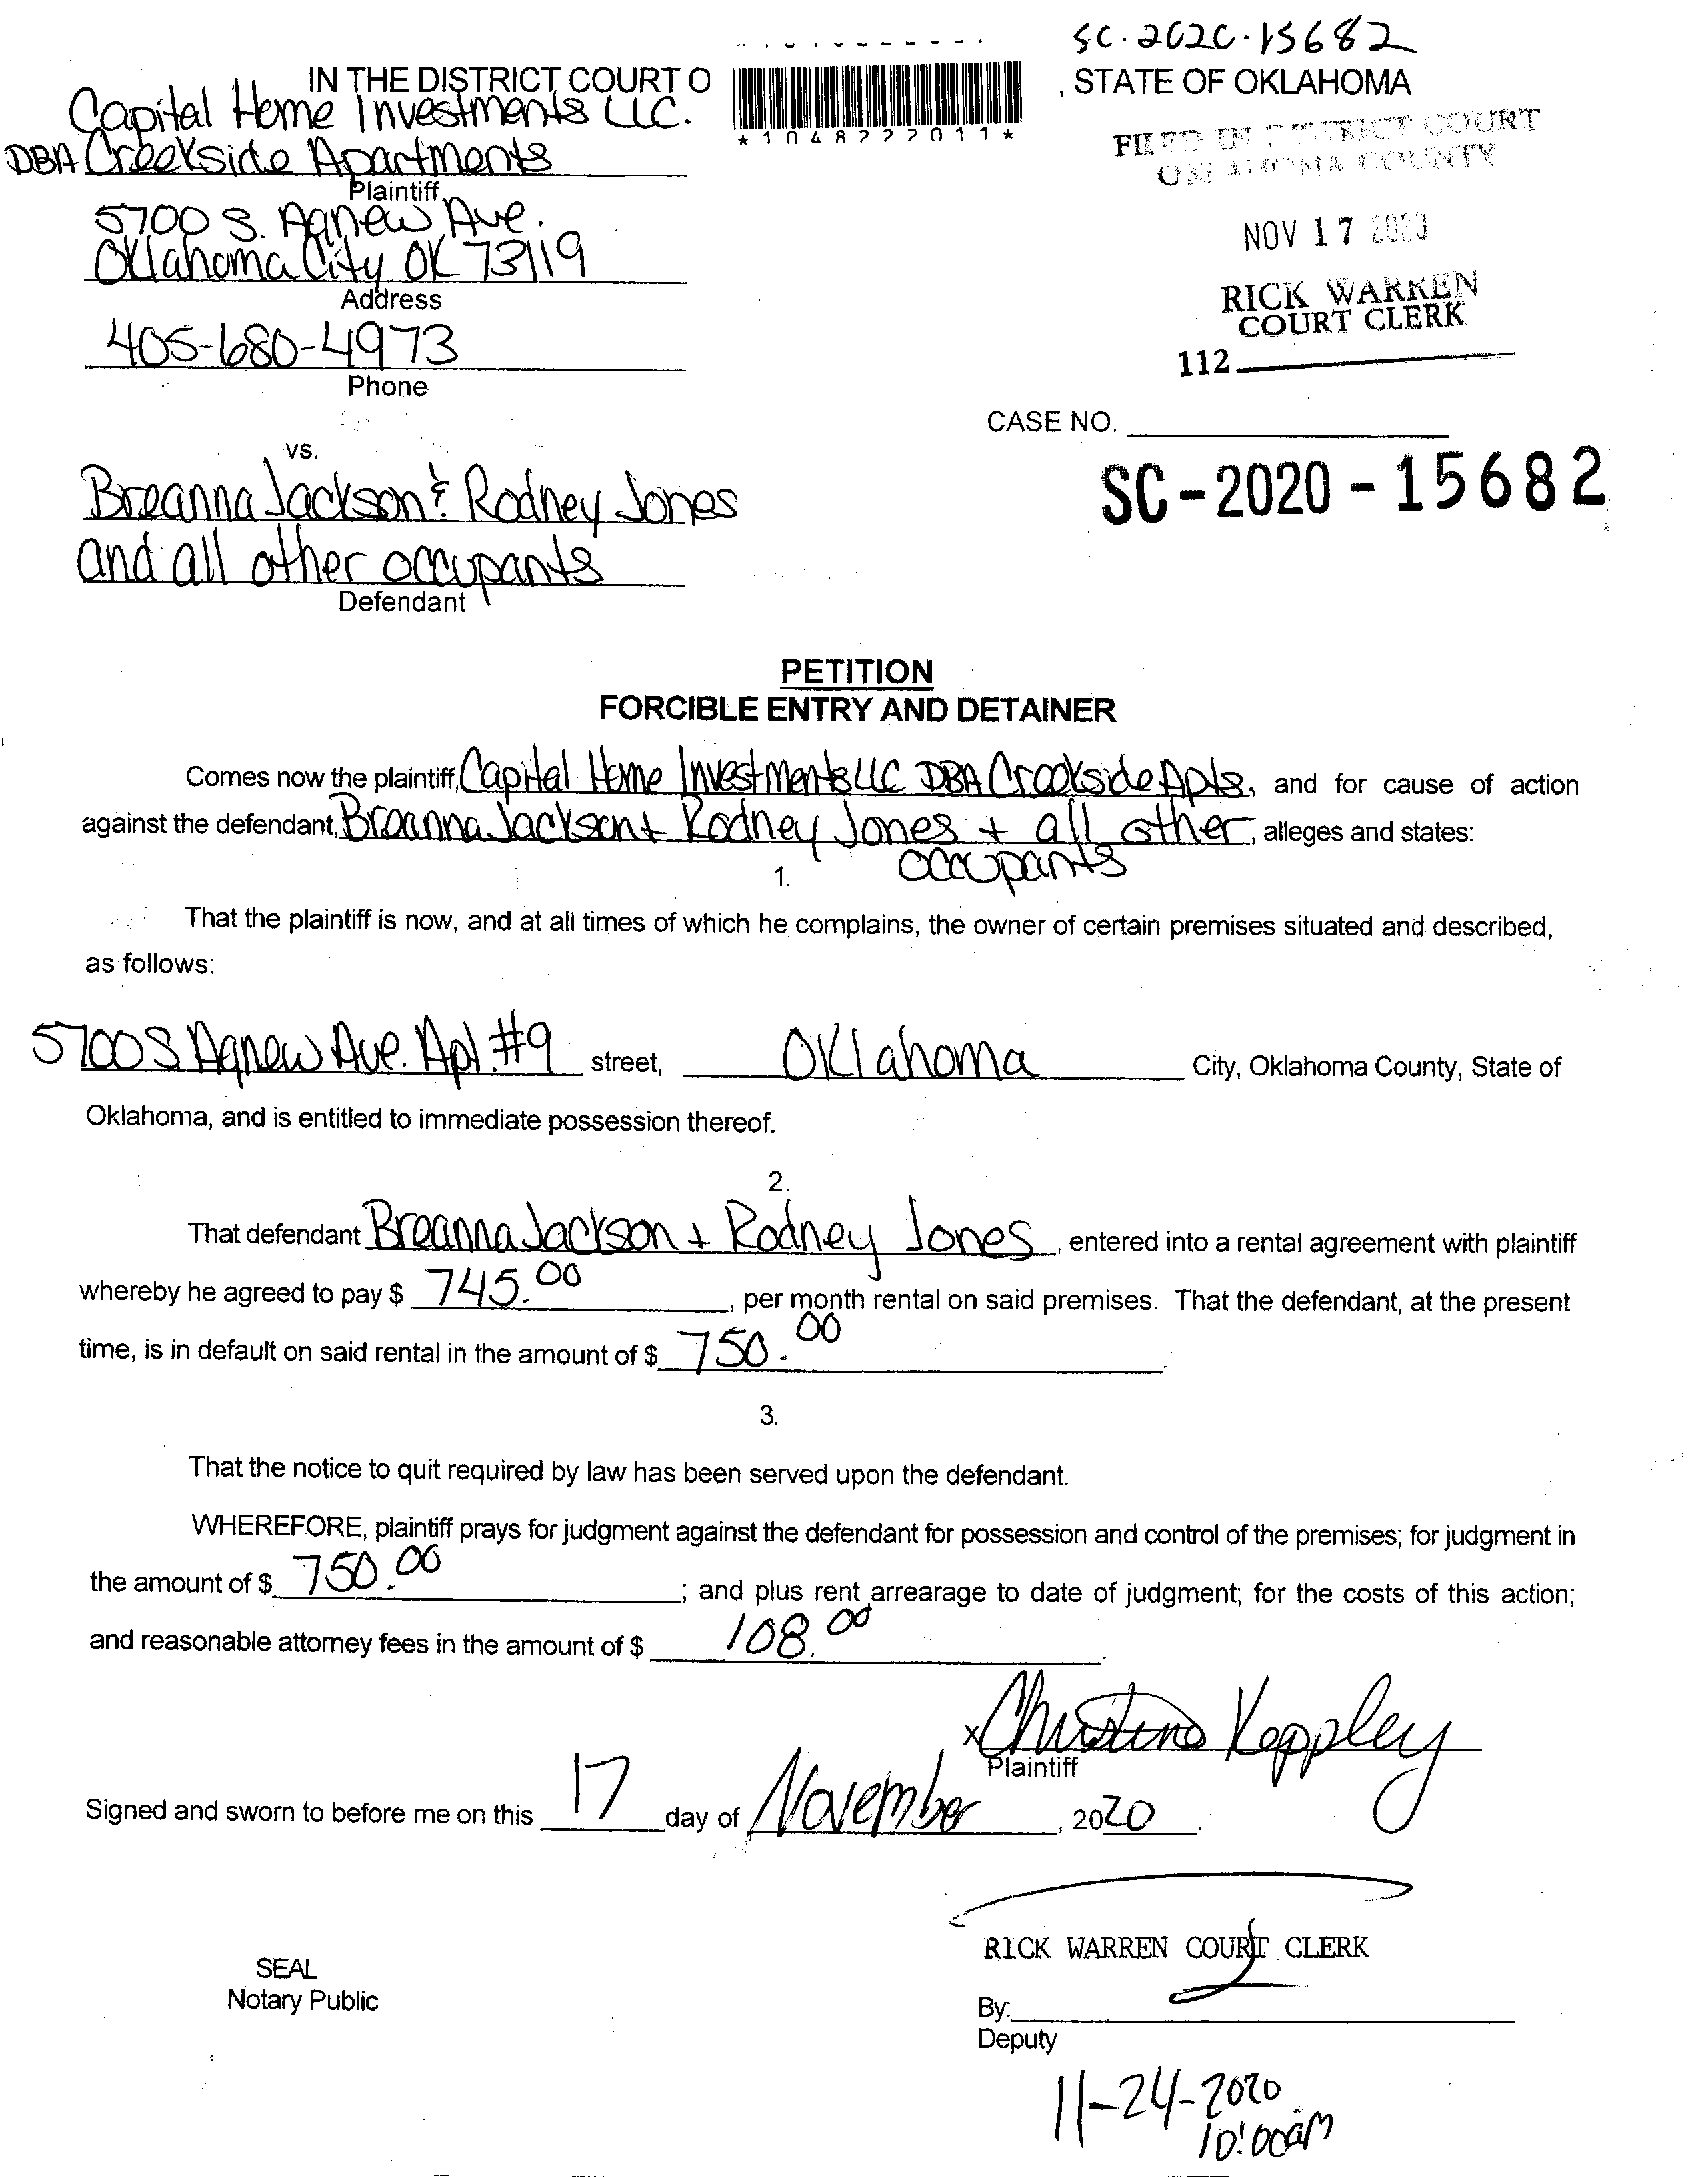 SC-2020-15682
IN THE DISTRICT COURT O , STATE OF OKLAHOMA
Capital Home Investments LLC.
DBA Creekside Apartments
Plaintiff
*1048222011*
FILED IN DISTRICT COURT
OKLAHOMA COUNTY
5700 S. Agnew Ave.
Oklahoma City OK 73119
Address
NOV 17 2020
RICK WARREN
COURT CLERK
405-680-4973
Phone
112
CASE NO.
vs.
SC-2020-15682
Breanna Jackson & Rodney Jones
and all other occupants
Defendant
PETITION
FORCIBLE ENTRY AND DETAINER
Comes now the plaintiff, Capital Home Investments LLC DBA Creekside Apts., and for cause of action
against the defendant, Breanna Jackson + Rodney Jones + all other, alleges and states:
occupants
1.
That the plaintiff is now, and at all times of which he complains, the owner of certain premises situated and described,
as follows:
5700 S Agnew Ave. Apt. #9 street, Oklahoma City, Oklahoma County, State of
Oklahoma, and is entitled to immediate possession thereof.
2.
That defendant Breanna Jackson + Rodney Jones, entered into a rental agreement with plaintiff
whereby he agreed to pay $ 745.00, per month rental on said premises. That the defendant, at the present
time, is in default on said rental in the amount of $ 750.00.
3.
That the notice to quit required by law has been served upon the defendant.
WHEREFORE, plaintiff prays for judgment against the defendant for possession and control of the premises; for judgment in
the amount of $ 750.00; and plus rent arrearage to date of judgment; for the costs of this action;
and reasonable attorney fees in the amount of $ 108.00.
x Christina Keppley
Plaintiff
Signed and sworn to before me on this 17 day of November, 2020.
RICK WARREN COURT CLERK
SEAL
Notary Public
By:
Deputy
11-24-2020
10:00am